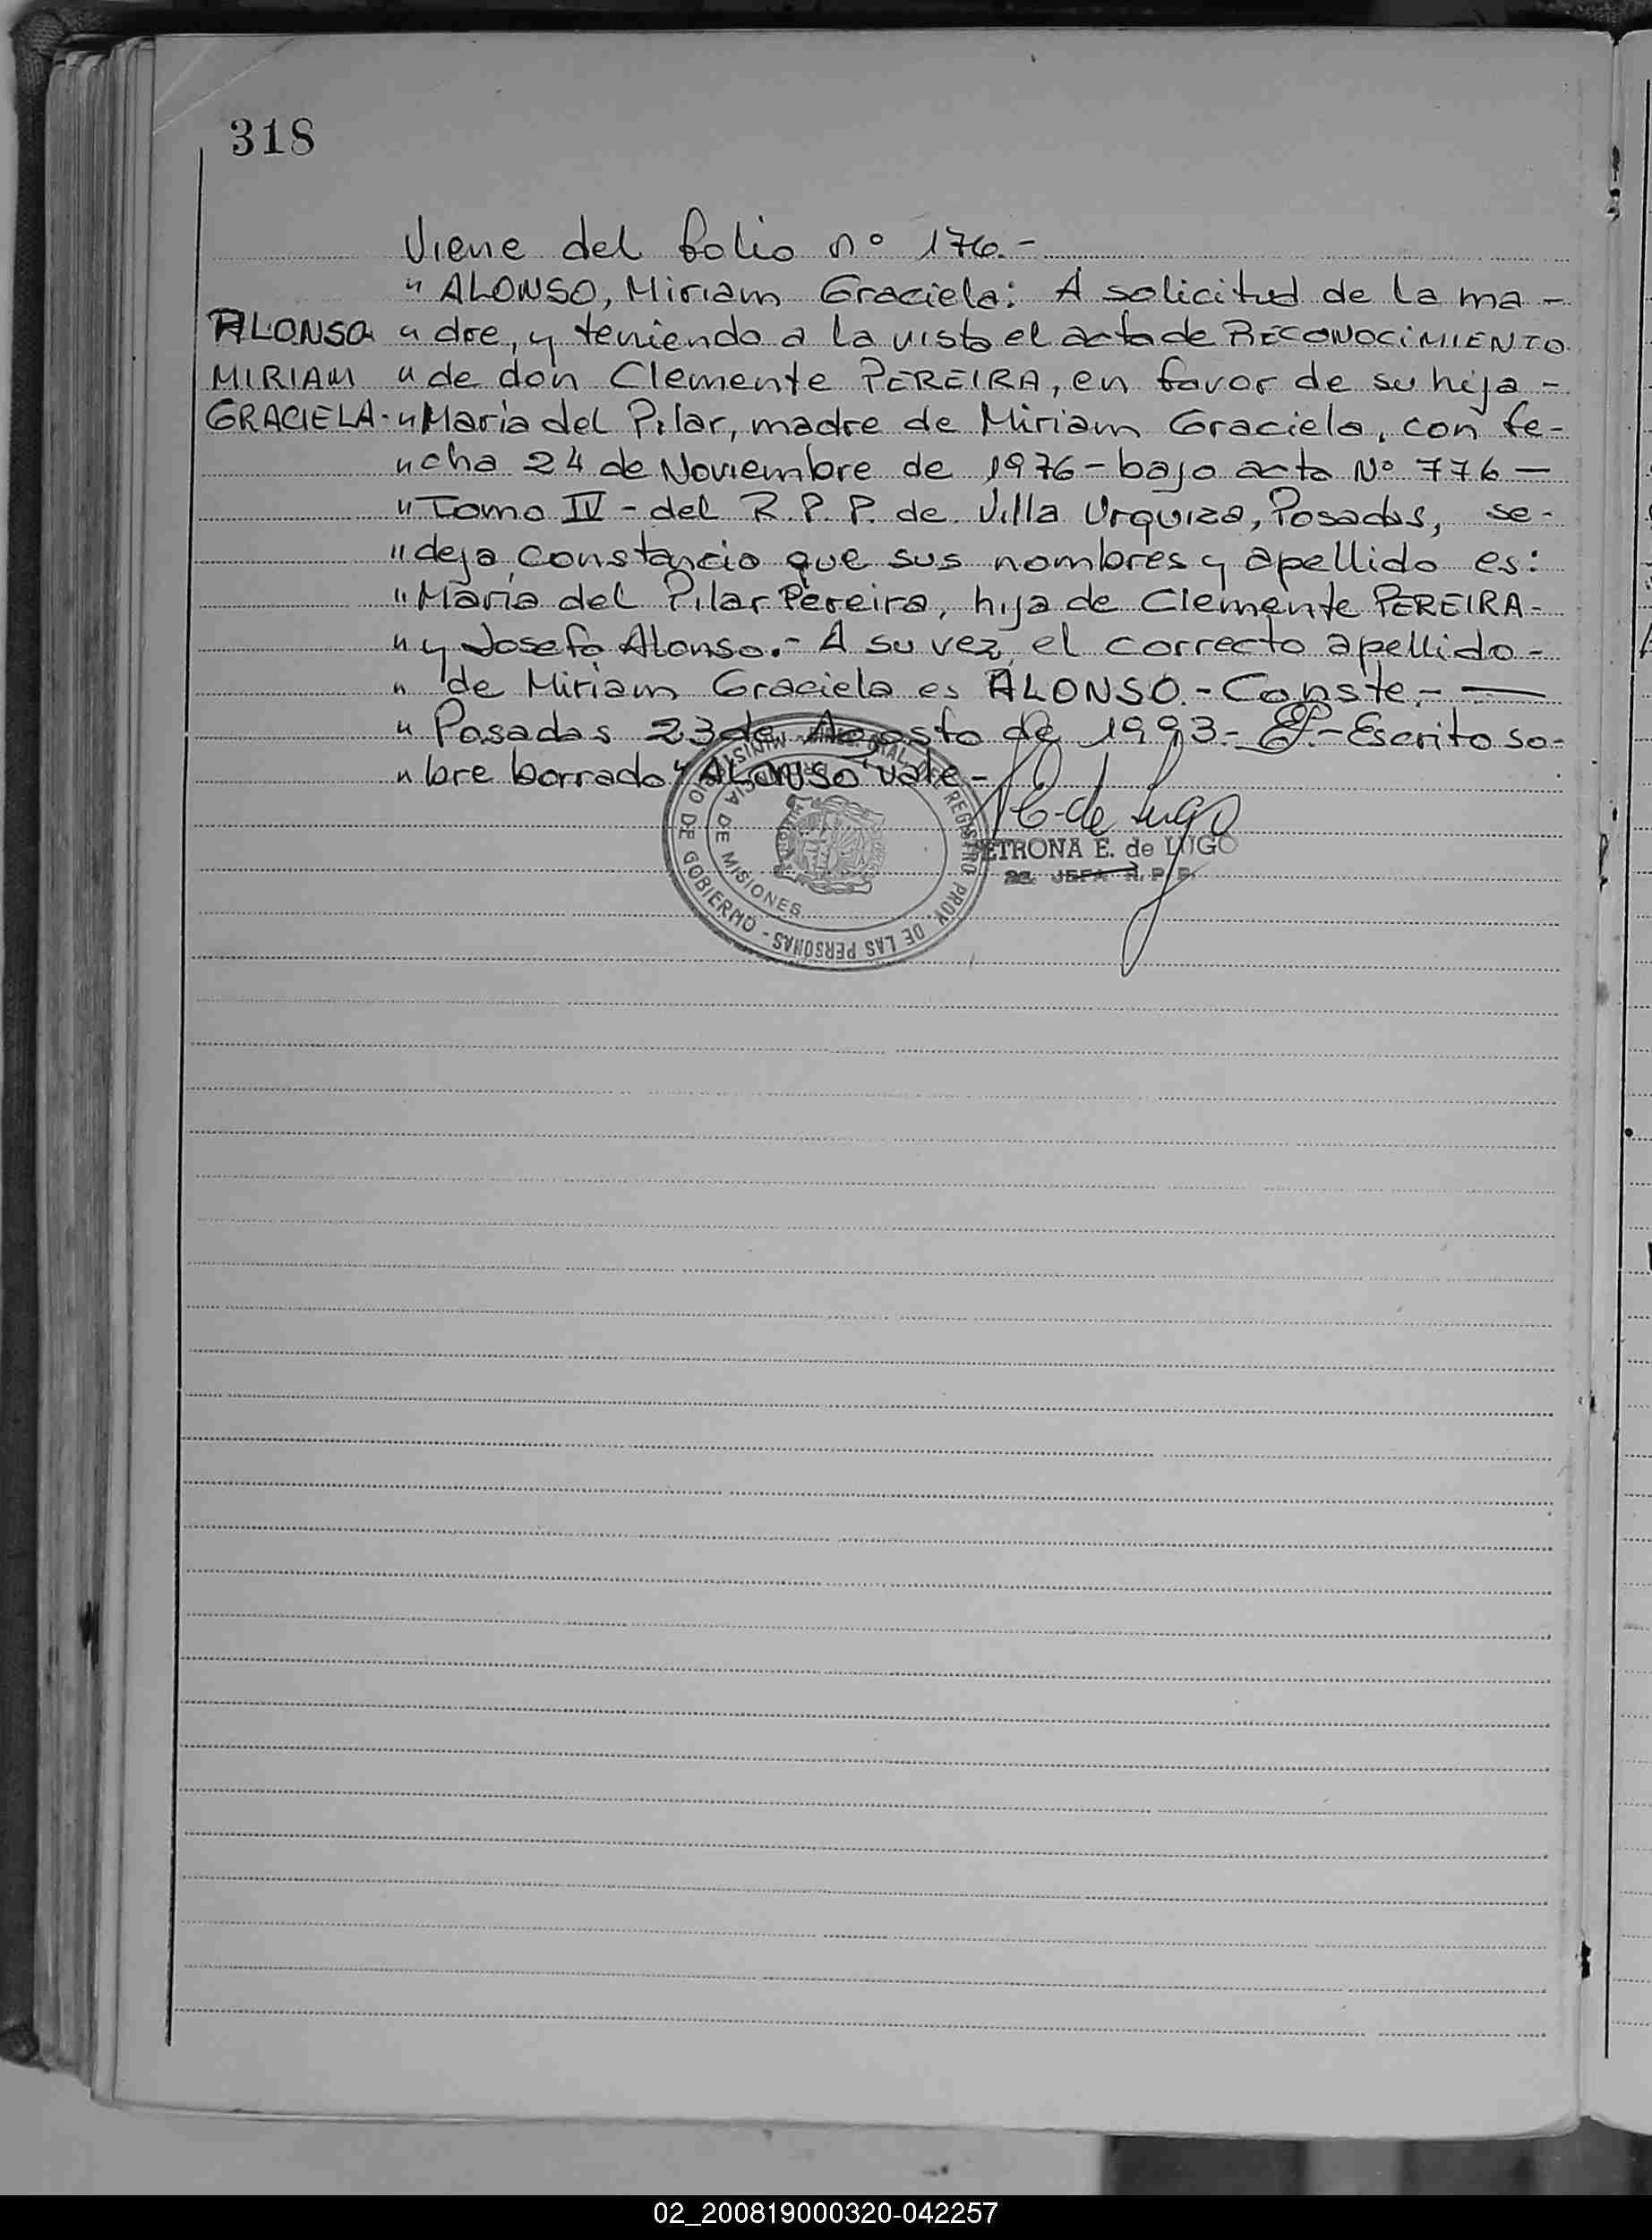 318
Viene del folio nº 176.-
" ALONSO, Miriam Graciela: A solicitud de la ma-
ALONSO " dre, y teniendo a la vista el acta de RECONOCIMIENTO
MIRIAM " de don Clemente PEREIRA, en favor de su hija -
GRACIELA- " Maria del Pilar, madre de Miriam Graciela, con fe-
" cha 24 de Noviembre de 1976 - bajo acta Nº 776 —
" Tomo IV - del R.P.P. de Villa Urquiza, Posadas, se-
" deja constancia que sus nombres y apellido es:
" Maria del Pilar Pereira, hija de Clemente PEREIRA-
" y Josefa Alonso.- A su vez, el correcto apellido-
" de Miriam Graciela es ALONSO.- Conste.- —
" Posadas 23 de Agosto de 1993.- - Escrito so-
" bre borrado "ALONSO" vale-
de Lugo
PETRONA E. de LUGO
JEFA R.P.P.
MINISTERIO DE GOBIERNO - GRAL. REGISTRO PROV. DE LAS PERSONAS -
PROVINCIA DE MISIONES
02_200819000320-042257